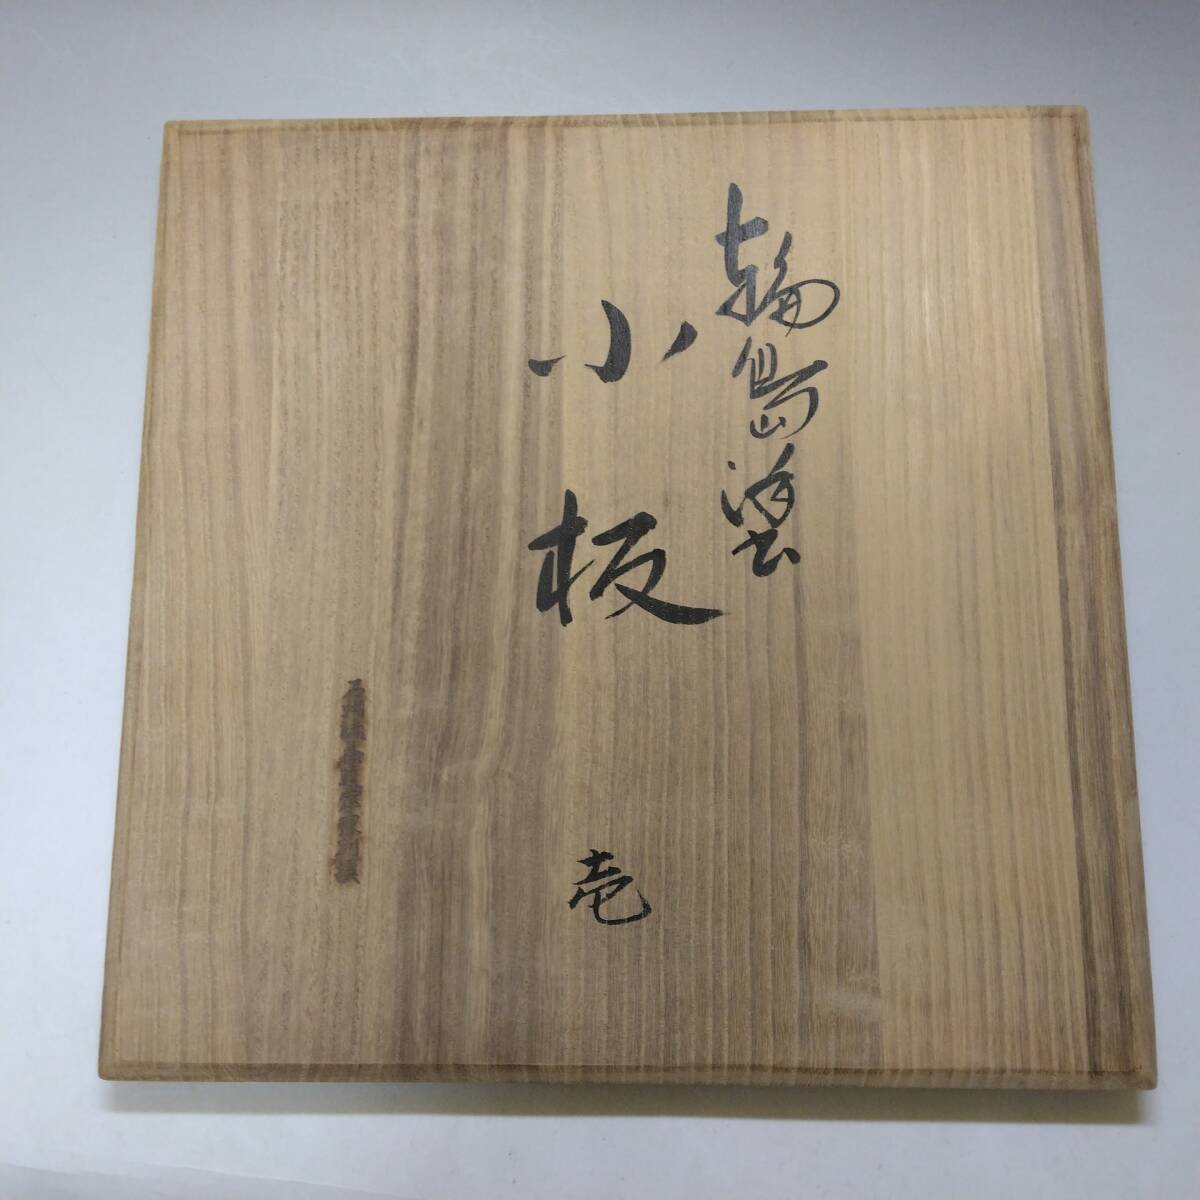 輪島塗
小板
壱